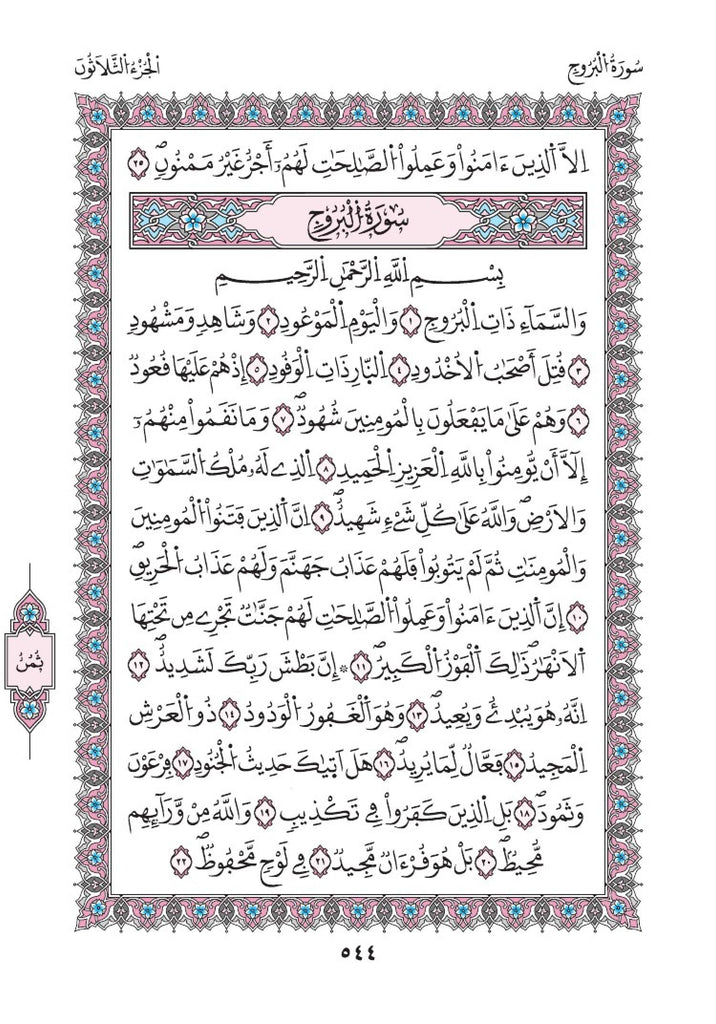 سُورَةُ الْبُرُوجِ
الْجُزْءُ الثَّلَاثُونَ
اِلَّا اَلذِينَ ءَامَنُواْ وَعَمِلُواْ الصَّالِحَاتِ لَهُمُۥٓ أَجْرٌ غَيْرُ مَمْنُونٍۖ ٢٥
سُورَةُ الْبُرُوجِ
بِسْمِ اِللَّهِ اِلرَّحْمَٰنِ اِلرَّحِيمِ
وَالسَّمَآءِ ذَاتِ اِلْبُرُوجِ ١ وَالْيَوْمِ اِلْمَوْعُودِ ٢ وَشَاهِدٍ وَمَشْهُودٍ
٣ قُتِلَ أَصْحَٰبُ اُلُاخْدُودِ ٤ اِلنَّارِ ذَاتِ اِلْوَقُودِ ٥ إِذْ هُمْ عَلَيْهَا قُعُودٌ
٦ وَهُمْ عَلَىٰ مَا يَفْعَلُونَ بِالْمُومِنِينَ شُهُودٌۖ ٧ وَمَا نَقَمُواْ مِنْهُمُۥٓ
إِلَّآ أَنْ يُّومِنُواْ بِاللَّهِ اِلْعَزِيزِ اِلْحَمِيدِ ٨ اِلذِے لَهُۥ مُلْكُ اُلسَّمَٰوَٰتِ
وَالَارْضِۖ وَاللَّهُ عَلَىٰ كُلِّ شَےْءٍ شَهِيدٌۖ ٩ اِنَّ اَلذِينَ فَتَنُواْ اُلْمُومِنِينَ
وَالْمُومِنَٰتِ ثُمَّ لَمْ يَتُوبُواْ فَلَهُمْ عَذَابُ جَهَنَّمَ وَلَهُمْ عَذَابُ اُلْحَرِيقِۖ
١٠ إِنَّ اَلذِينَ ءَامَنُواْ وَعَمِلُواْ اُلصَّٰلِحَٰتِ لَهُمْ جَنَّٰتٌ تَجْرِے مِن تَحْتِهَا
اَلَانْهَٰرُۖ ذَٰلِكَ اَلْفَوْزُ اُلْكَبِيرُۖ ١١ ۞ إِنَّ بَطْشَ رَبِّكَ لَشَدِيدٌۖ ١٢
اِنَّهُۥ هُوَ يُبْدِئُ وَيُعِيدُۖ ١٣ وَهُوَ اَلْغَفُورُ اُلْوَدُودُ ١٤ ذُو اُلْعَرْشِ
اِلْمَجِيدُ ١٥ فَعَّالٌ لِّمَا يُرِيدُۖ ١٦ هَلَ اَتَيٰكَ حَدِيثُ اُلْجُنُودِ ١٧ فِرْعَوْنَ
وَثَمُودَۖ ١٨ بَلِ اِلذِينَ كَفَرُواْ فِے تَكْذِيبٍ ١٩ وَاللَّهُ مِنْ وَّرَآئِهِم
مُّحِيطٌۖ ٢٠ بَلْ هُوَ قُرْءَانٌ مَّجِيدٌ ٢١ فِے لَوْحٍ مَّحْفُوظٌۖ ٢٢
ثُمُنٌ
٥٤٤